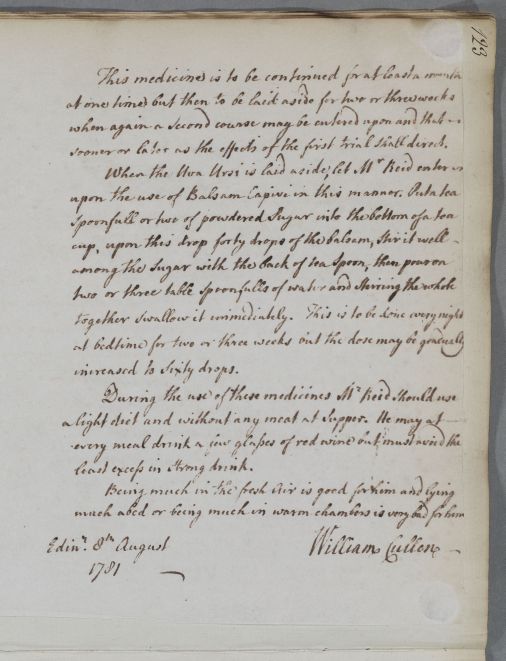 123
This medicine is to be continued for at least a month
at one time but then to be laid aside for two or three weeks
when again a second course may be entered upon and that
sooner or later as the effects of the first trial shall direct.
When the Uva Ursi is laid aside, let Mr Reid enter
upon the use of Balsam Capivi in this manner. Put a tea
Spoonfull or two of powdered Sugar into the bottom of a tea
cup, upon this drop forty drops of the balsam, Stir it well
among the Sugar with the back of tea Spoon, then pour on
two or three table Spoonfulls of water and Stirring the whole
together Swallow it immediately. This is to be done every night
at bedtime for two or three weeks but the dose may be gradually
increased to Sixty drops.
During the use of these medicines Mr Reid should use
a light diet and without any meat at Supper. He may at
every meal drink a few glasses of red wine but must avoid the
least excess in Strong drink.
Being much in the fresh Air is good for him and lying
much abed or being much in warm chambers is very bad for him
Edinr. 8th August William Cullen
1781